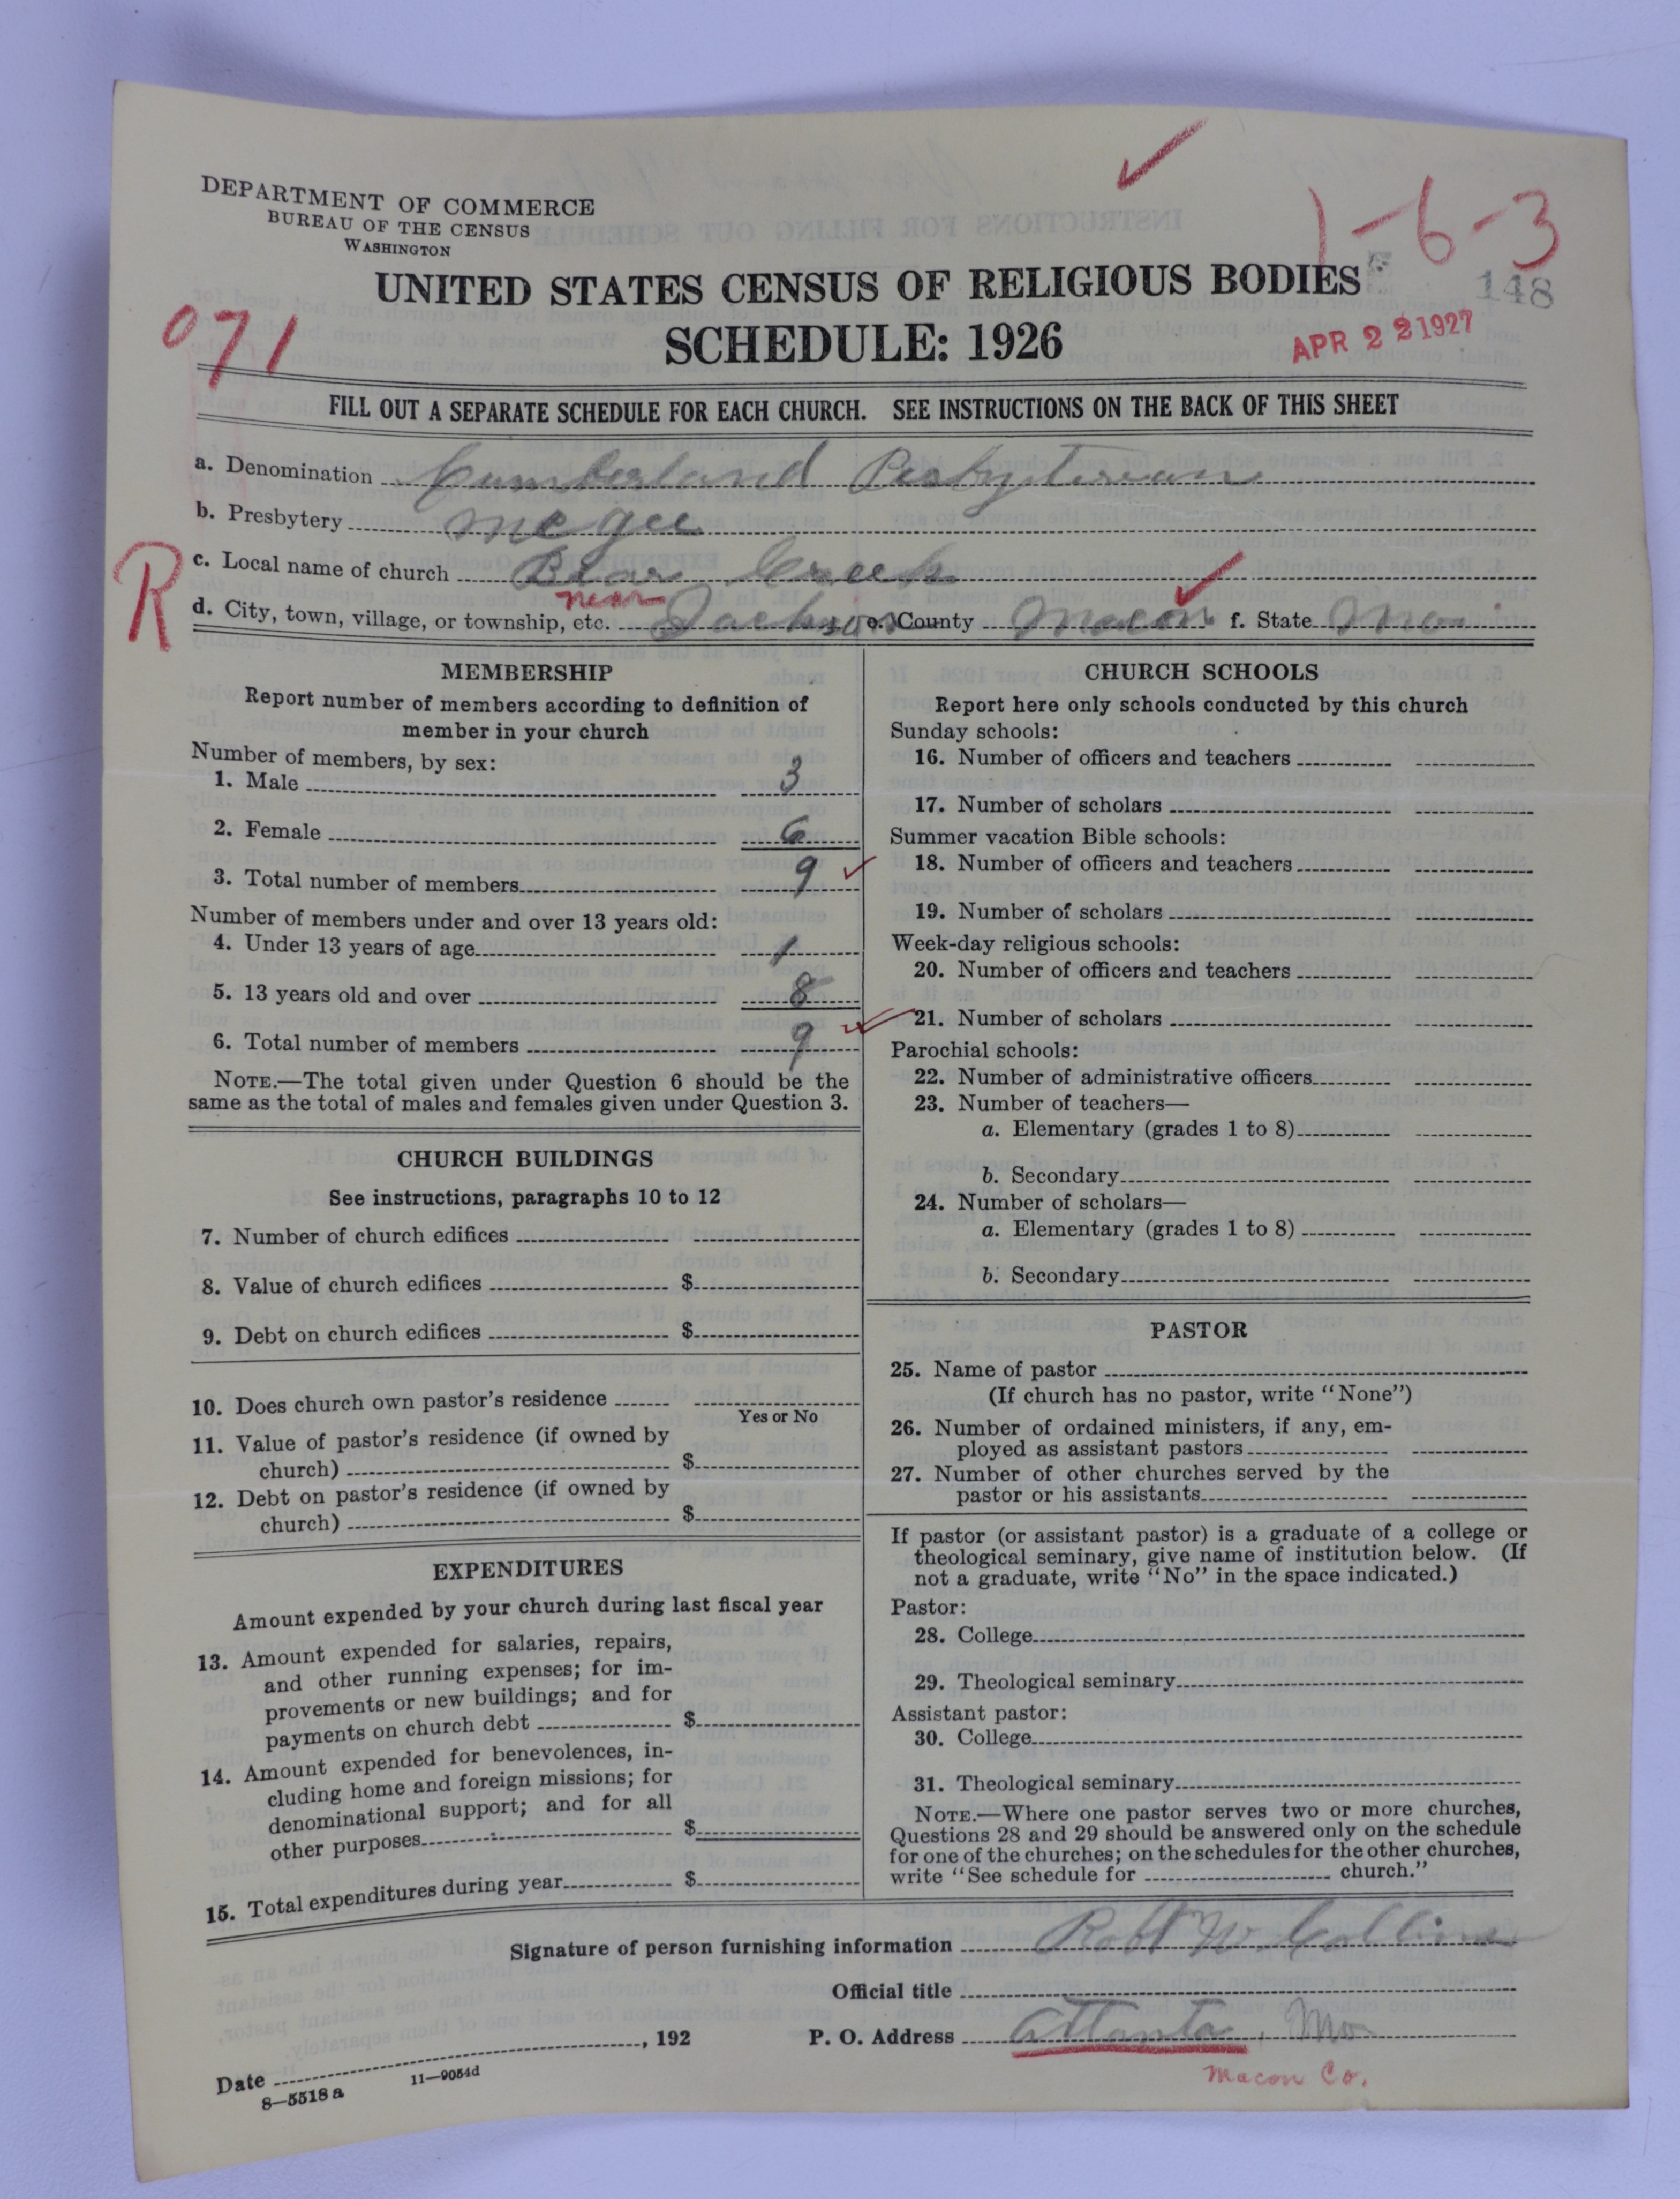 DEPARTMENT OF COMMERCE
BUREAU OF THE CENSUS
WASHINGTON
1-6-3
UNITED STATES CENSUS OF RELIGIOUS BODIES
148
SCHEDULE: 1926
APR 22 1927
071
FILL OUT A SEPARATE SCHEDULE FOR EACH CHURCH. SEE INSTRUCTIONS ON THE BACK OF THIS SHEET
a. Denomination Cumberland Presbyterian
b. Presbytery McGee
R
c. Local name of church Bear Creek
near
d. City, town, village, or township, etc. Jackson e. County Macon f. State Mo.
MEMBERSHIP
Report number of members according to definition of
member in your church
Number of members, by sex:
1. Male 3
2. Female 6
3. Total number of members 9
Number of members under and over 13 years old:
4. Under 13 years of age 1
5. 13 years old and over 8
6. Total number of members 9
NOTE.—The total given under Question 6 should be the
same as the total of males and females given under Question 3.
CHURCH BUILDINGS
See instructions, paragraphs 10 to 12
7. Number of church edifices
8. Value of church edifices $
9. Debt on church edifices $
10. Does church own pastor's residence
Yes or No
11. Value of pastor's residence (if owned by
church) $
12. Debt on pastor's residence (if owned by
church) $
EXPENDITURES
Amount expended by your church during last fiscal year
13. Amount expended for salaries, repairs,
and other running expenses; for im-
provements or new buildings; and for
payments on church debt $
14. Amount expended for benevolences, in-
cluding home and foreign missions; for
denominational support; and for all
other purposes $
15. Total expenditures during year $
CHURCH SCHOOLS
Report here only schools conducted by this church
Sunday schools:
16. Number of officers and teachers
17. Number of scholars
Summer vacation Bible schools:
18. Number of officers and teachers
19. Number of scholars
Week-day religious schools:
20. Number of officers and teachers
21. Number of scholars
Parochial schools:
22. Number of administrative officers
23. Number of teachers—
a. Elementary (grades 1 to 8)
b. Secondary
24. Number of scholars—
a. Elementary (grades 1 to 8)
b. Secondary
PASTOR
25. Name of pastor
(If church has no pastor, write "None")
26. Number of ordained ministers, if any, em-
ployed as assistant pastors
27. Number of other churches served by the
pastor or his assistants
If pastor (or assistant pastor) is a graduate of a college or
theological seminary, give name of institution below. (If
not a graduate, write "No" in the space indicated.)
Pastor:
28. College
29. Theological seminary
Assistant pastor:
30. College
31. Theological seminary
NOTE.—Where one pastor serves two or more churches,
Questions 28 and 29 should be answered only on the schedule
for one of the churches; on the schedules for the other churches,
write "See schedule for church."
Signature of person furnishing information Robt W. Collins
Official title
Date , 192 P. O. Address Atlanta, Mo
8—5518 a 11—9054d
Macon Co.